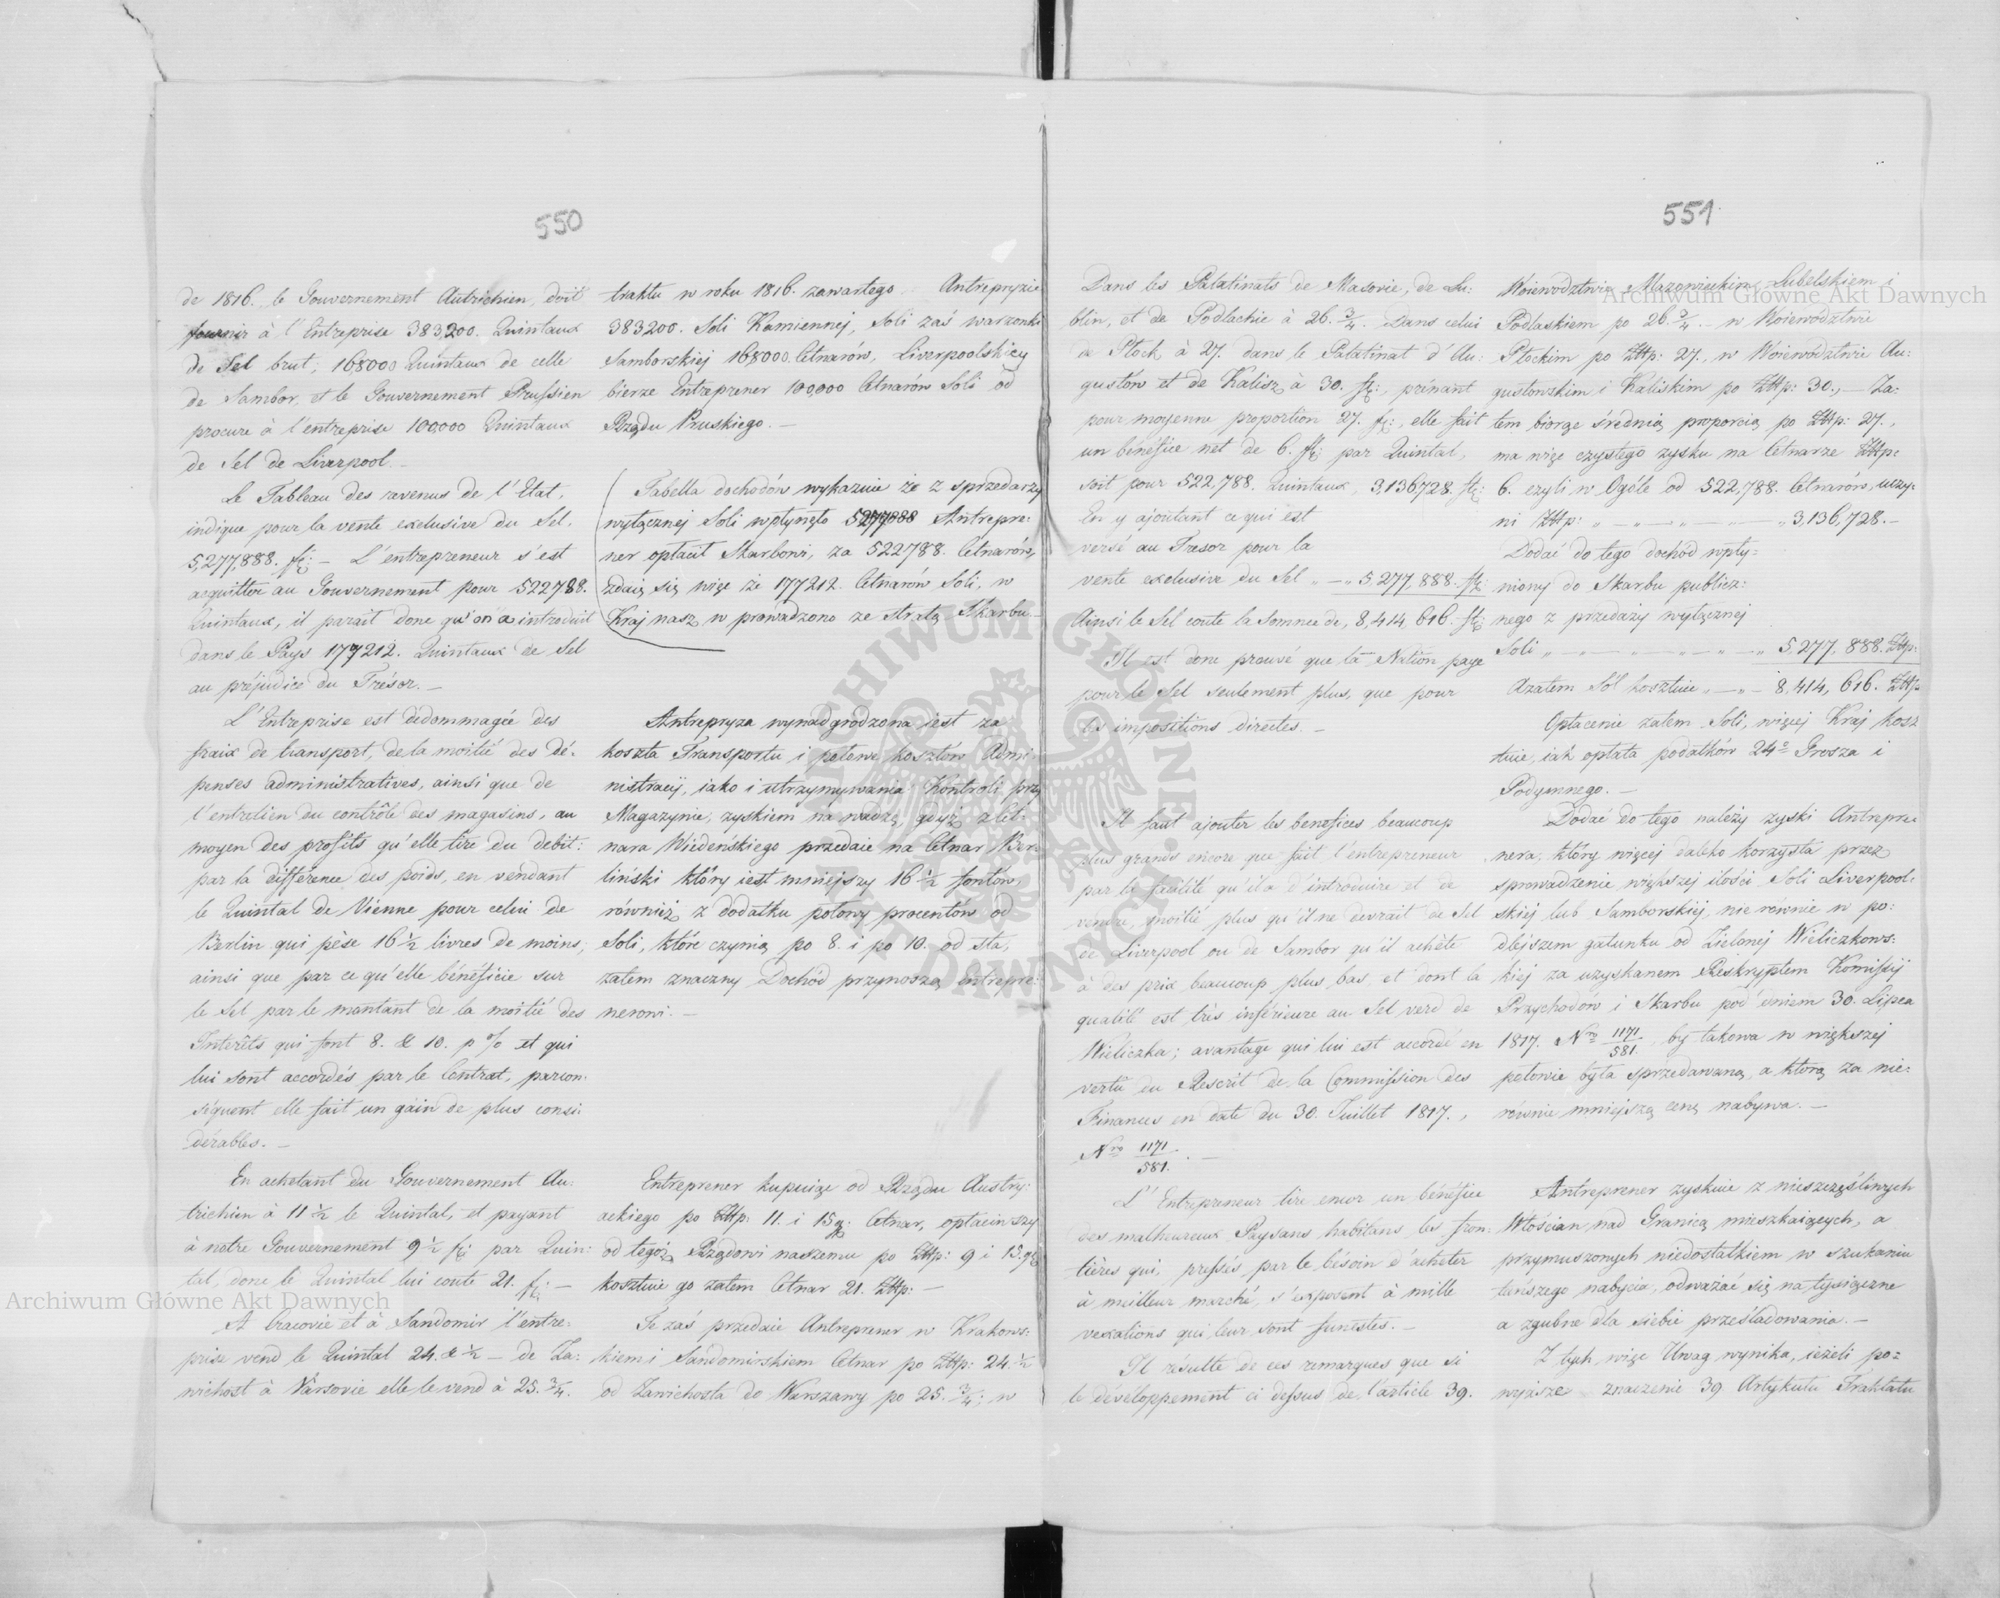 550
de 1816. le Gouvernement Autrichien, doit
fournir à l'Entreprise 383200. Quintaux
de Sel brut, 168000 Quintaux de celle
de Sambor, et le Gouvernement Prussien
procure à l'entreprise 100,000 Quintaux
de Sel de Liverpool. –
Le Tableau des revenus de l'Etat,
indique pour la vente exclusive du Sel,
5,277,888. fl: – L'entrepreneur s'est
acquitté au Gouvernement pour 522788.
Quintaux, il parait donc qu'on a introduit
dans le Pays 177212. Quintaux de Sel
au préjudice du Trésor. –
L'Entreprise est dedommagée des
fraix de transport, de la moitié des dé-
penses administratives, ainsi que de
l'entretien du contrôle des magasins, au
moyen des profits qu'elle tire du debit:
par la différence des poids, en vendant
le Quintal de Vienne pour celui de
Berlin qui pèse 16 1/2 livres de moins,
ainsi que par ce qu'elle bénéficie sur
le Sel par le montant de la moitié des
Interêts qui font 8. & 10. p % et qui
lui sont accordés par le Contrat, parcon:
séquent elle fait un gain de plus consi:
dérables. –
En achetant du Gouvernement Au:
trichien à 11 1/2 le Quintal, et payant
à notre Gouvernement 9 1/2 fl: par Quin:
tal, donc le Quintal lui coute 21. fl: –
A Cracovie et à Sandomir l'entre:
prise vend le Quintal 24. & 1/2 – de Za:
wichost à Varsovie elle le vend à 25. 3/4.
traktu w roku 1816. zawartego Antrepryzie
383200. Soli Kamiennej, Soli zaś warzonki
Samborskiej 168000 Cetnarów, Liverpoolskiey
bierze Entreprener 100,000 Cetnarów Soli od
Rządu Pruskiego. –
Tabella dochodów wykazuie że z sprzedarzy
wyłącznej Soli wpłynęło 5277888 Antrepre:
ner opłacił Skarbowi, za 522788. Cetnarów,
zdaię się więc że 177212. Cetnarów Soli, w
Kraj nasz w prowadzono ze stratą Skarbu –
Antrepryza wynadgrodzona iest za
koszta Transportu i połowę kosztów Admi:
nistracij, iako i utrzymywania Kontroli przy
Magazynie, zyskiem na wadzę, gdyż z Cet:
nara Wiedeńskiego przedaie na Cetnar Ber:
liński który iest mniejszy 16 1/2 fontów,
również z dodatku połowy procentów od
Soli, które czynią po 8. i po 10. od sta,
zatem znaczny Dochód przynoszą entrepre:
nerowi. –
Entreprener kupuiąc od Rządu Austry:
ackiego po Złtp: 11. i 15 g: Cetnar, opłaciwszy
od tegóż Rządowi naszemu po Złtp: 9 i 15. g:
kosztuie go zatem Cetnar 21. Złtp: –
Te zaś przedaie Antreprener w Krakows:
kiem i Sandomirskiem Cetnar po Złtp: 24. 1/2
od Zawichosta do Warszawy po 25. 3/4; w
551
Dans les Palatinats de Masovie, de Lu:
blin, et de Podlachie à 26. 3/4. Dans celui
de Płock à 27. dans le Palatinat d'Au:
gustów et de Kalisz à 30. fl:, prénant
pour moyenne proportion 27. fl:, elle fait
un bénéfice net de 6. fl: par Quintal,
soit pour 522,788. Quintaux, 3,136,728. fl:
En y ajoutant ce qui est
versé au Tresor pour la
vente exclusive du Sel „ – „ 5,277,888. fl:
Ainsi le Sel coute la Somme de, 8,414,616. fl:
Il est donc prouvé que la Nation paye
pour le Sel seulement plus, que pour
les impositions directes. –
Il faut ajouter les benefices beaucoup
plus grands encore que fait l'entrepreneur
par la facilité qu'il a d'introduire et de
vendre, moitié plus qu'il ne devrait de Sel
de Liverpool ou de Sambor qu'il achète
à des prix beaucoup plus bas, et dont la
qualité est très inférieure au Sel verd de
Wieliczka; avantage qui lui est accordé en
vertu du Rescrit de la Commission des
Finances en date du 30. Juillet 1817.,
Nro 1171/581. –
L'Entrepreneur tire encor un bénéfice
des malheureux Paysans habitans les fron:
tières qui, pressés par le bésoin d'acheter
à meilleur marché, s'exposent à mille
vexations qui leur sont funestes. –
Il résulte de ces remarques que si
le développement ci dessus de l'article 39.
Woiewodztwie Mazowieckim, Lubelskiem i
Podlaskiem po 26. 3/4. – w Woiewodztwie
Płockim po Złtp: 27., w Woiewództwie Au:
gustowskim i Kaliskim po Złtp: 30., – Za:
tem biorąc średnią proporcią po Złtp: 27.,
ma więc czystego zysku na Cetnarze Złtp:
6. czyli w Ogóle od 522,788. Cetnarów, uczy:
ni Złtp: „ – „ – „ – „ 3,136,728. –
Dodać do tego dochód wpły:
niony do Skarbu publicz:
nego z przedaży wyłącznej
Soli „ – „ – „ – „ – „ 5,277,888. Złtp:
Azatem Sól kosztuie „ – „ – 8,414,616. Złtp
Opłacenie zatem Soli, więcej Kraj kosz
tuie, iak opłata podatków 24º Grosza i
Podymnego. –
Dodać do tego należy zyski Antrepre:
nera, który więcej daleko korzysta przez
sprowadzenie większej ilości Soli Liverpool:
skiej lub Samborskiej, nie równie w po:
dlejszem gatunku od Zielonej Wieliczkows:
kiej za uzyskanem Reskryptem Komissyi
Przychodow i Skarbu pod dniem 30. Lipca
1817. Nro 1171/581. by takowa w większej
połowie była sprzedawaną, a którą za nie:
równie mniejszą cenę nabywa. –
Antreprener zyskuie z nieszczęśliwych
Włościan nad Granicą mieszkaiących, a
przymuszonych niedostatkiem w szukaniu
tańszego nabycia, odważać się na tysiączne
a zgubne dla siebie prześladowania. –
Z tych więc Uwag wynika, ieżeli po:
wyższe znaczenie 39 Artykułu Traktatu
Archiwum Główne Akt Dawnych
Archiwum Główne Akt Dawnych
ARCHIWUM GŁÓWNE AKT DAWNYCH